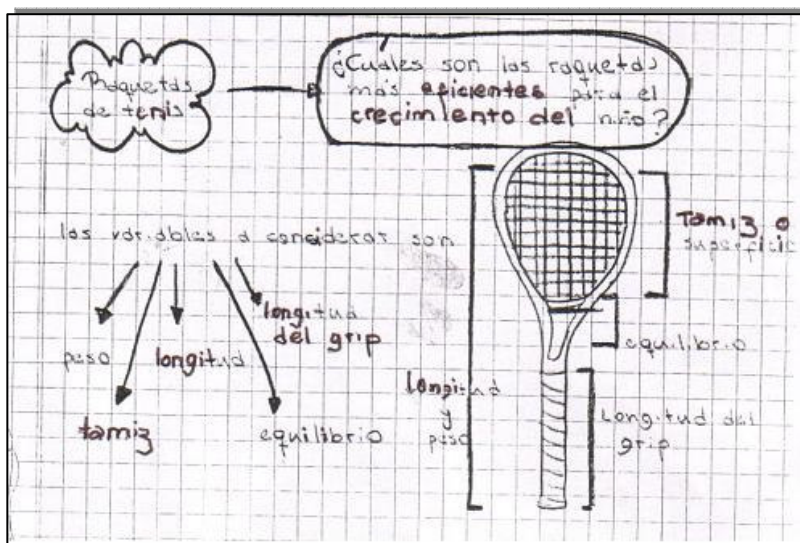 Raquetas
de tenis
¿Cuáles son las raquetas
más eficientes para el
crecimiento del niño?
las variables a considerar son
peso
tamiz
longitud
longitud
del grip
equilibrio
longitud
y
peso
Tamiz o
superficie
equilibrio
Longitud del
grip